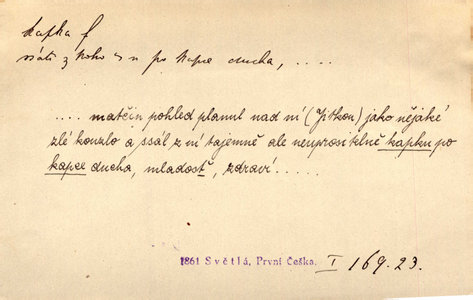 kapka f
ssáti z koho n po kapce ducha, ....
.... matčin pohled planul nad ní (Jitkou) jako nějaké
zlé kouzlo a ssál z ní tajemně ale neuprositelně kapku po
kapce ducha, mladosť, zdraví.....
1861 Světlá, První Češka. I 169.23.